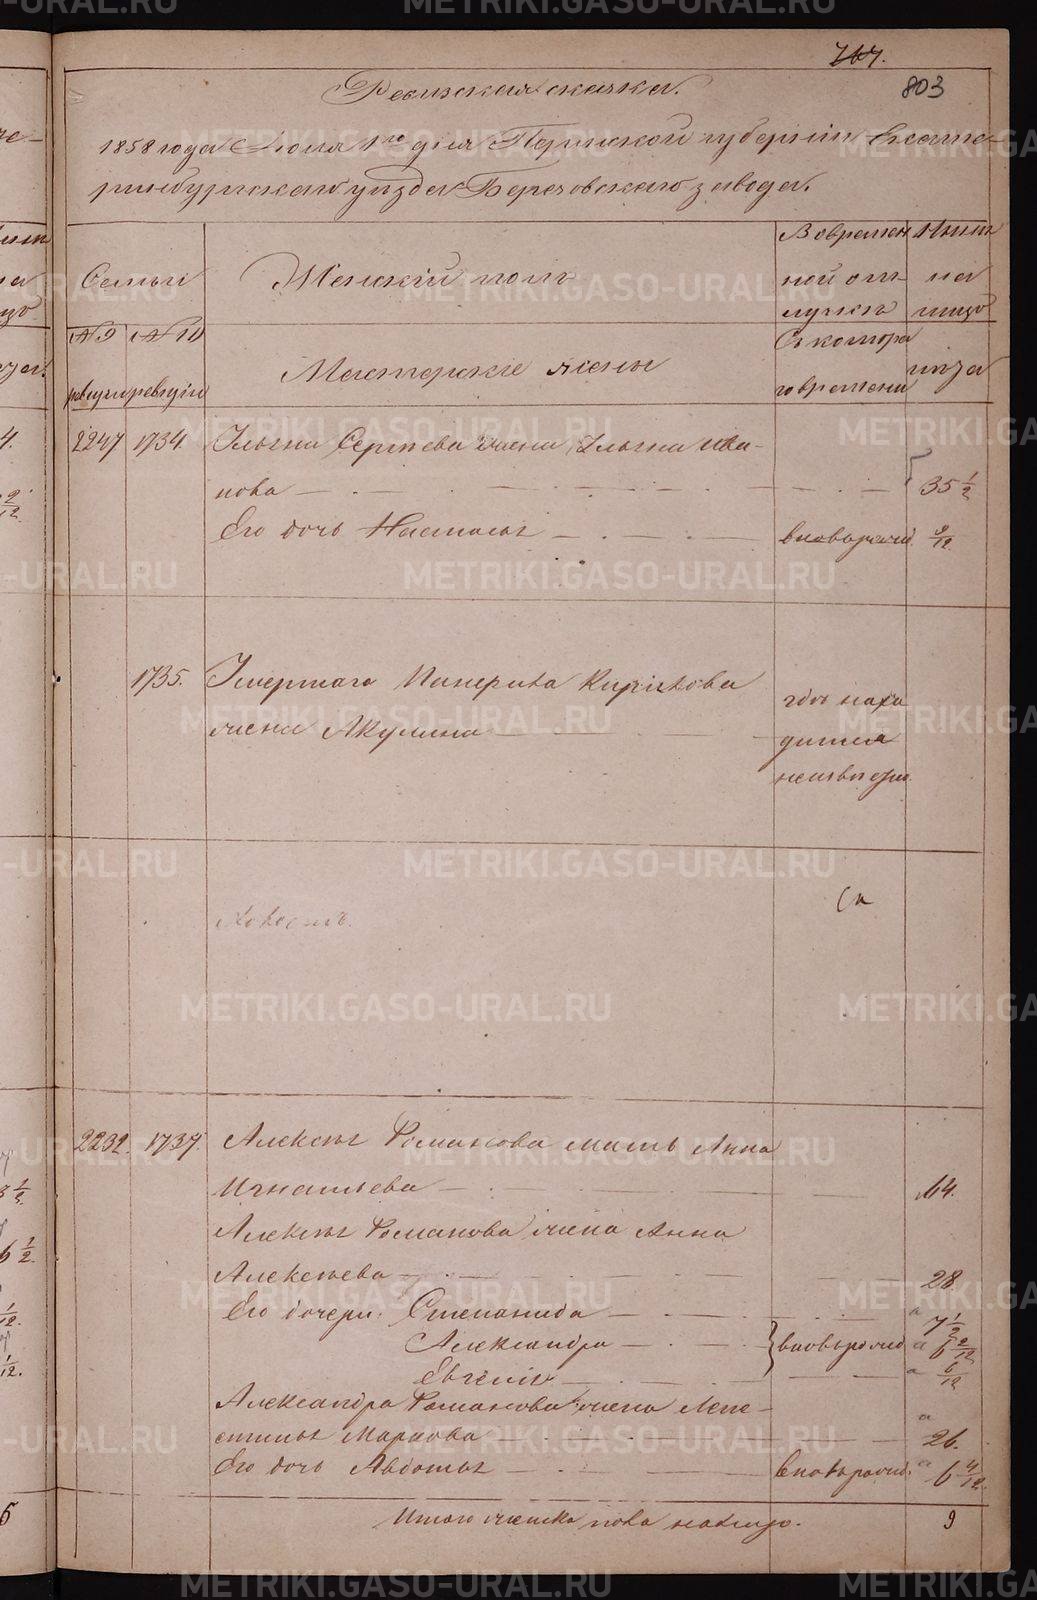 767.
803
Ревизская сказка.
1858 года Июля 1го дня Пермской губернии Екате-
ринбургскаго уезда Березовскаго завода.
Семьи
Женский полъ
В времен
ной отъ-
лучкѣ
Ныне
на
лицо
№ 9
ревизии
№ 10
ревизии
Мастерские жены
Съ котора
го времени
лѣта
2247 1734. Ильи Сергѣева жена Ивa-
нова 35 1/2
Его дочь Настасья вноворожд. 9/12
1735. Умершаго Кирилова
жена Акулина
где нахо
дится
неизвестн.
2232. 1737. Алексѣя Романова мать Анна
Игнатьева 64.
Алексѣя Романова жена Анна
Алексѣева 28
Его дочери: Степанида 7 1/2
Александра вноворожд 6 2/12
Евгенія 6/12
Александра Романова жена Лепе-
стинья Маркова 26.
Его дочь Авдотья вноворожд. 6 4/12
Итого женска пола налицо. 9
METRIKI.GASO-URAL.RU